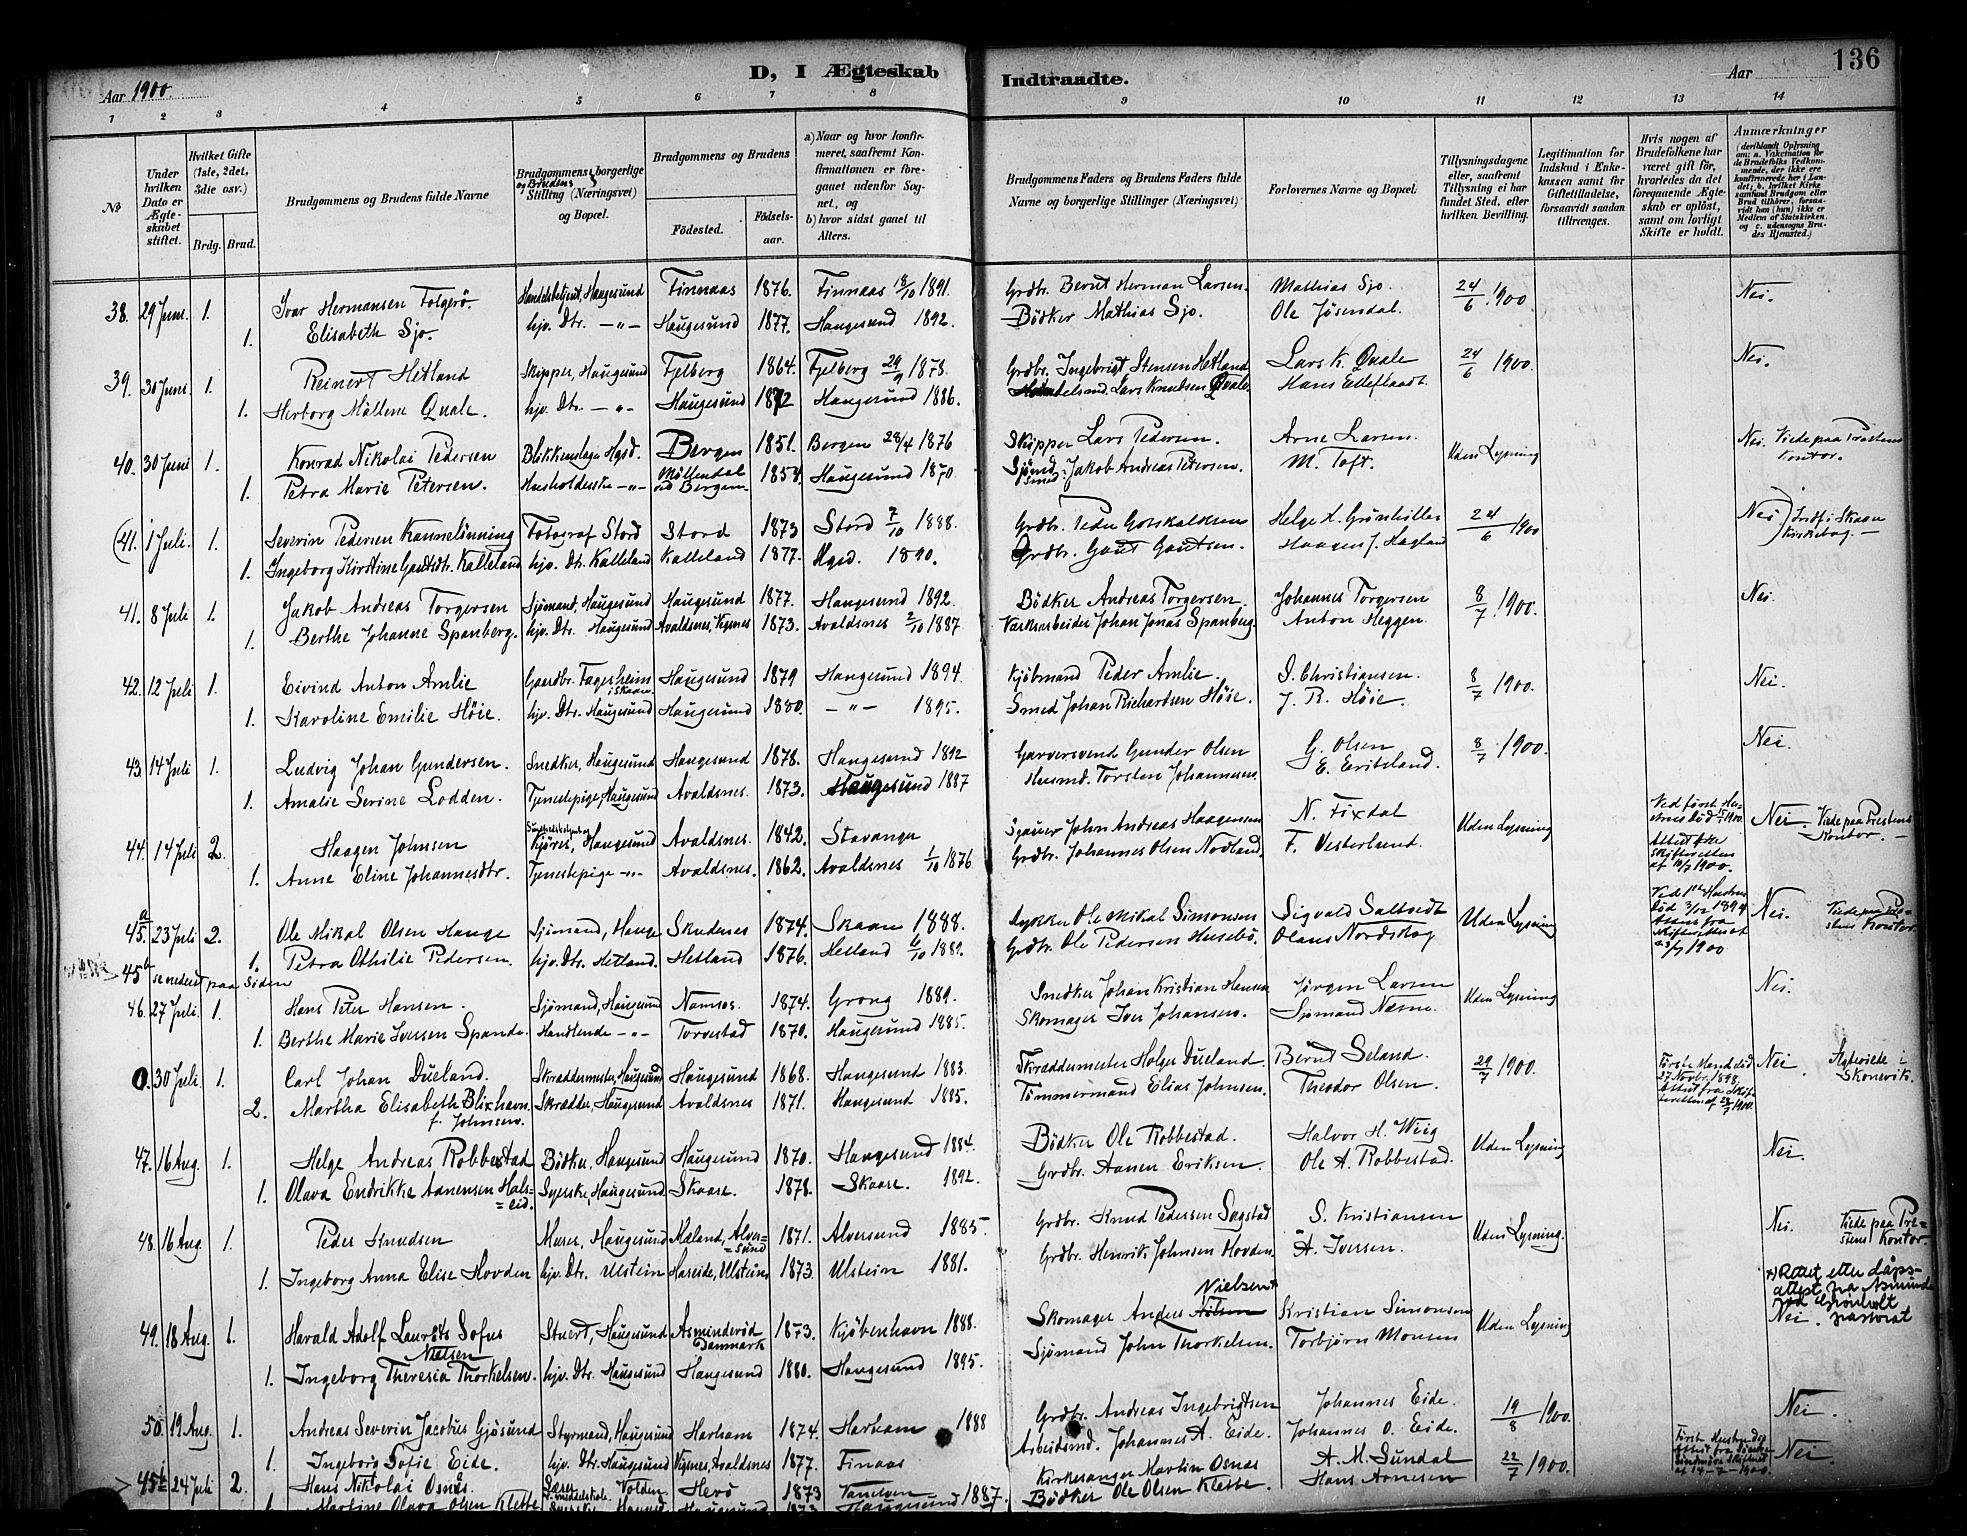 Aar 1900.
D, I Ægteskab Indtraadte.
Aar 136
1 2 3 4 5 6 7 8 9 10 11 12 13 14
No
Under hvilken Dato er Ægteskabet stiftet.
Hvilket Gifte (1ste, 2det, 3die osv.)
Brdg. Brud.
Brudgommens og Brudens fulde Navne
Brudgommens og Brudens borgerlige Stilling (Næringsvei) og Bopæl.
Brudgommens og Brudens
Fødested. Fødselsaar.
a) Naar og hvor konfirmeret, saafremt Konfirmationen er foregaaet udenfor Sognet, og
b) hvor sidst gaaet til Alters.
Brudgommens Faders og Brudens Faders fulde Navne og borgerlige Stillinger (Næringsvei)
Forlovernes Navne og Bopæl.
Tillysningsdagene eller, saafremt Tillysning ei har fundet Sted, efter hvilken Bevilling.
Legitimation for Indskud i Enkekassen samt for Giftetilladelse, forsaavidt saadan tiltrænges.
Hvis nogen af Brudefolkene har været gift før, hvorledes da det foregaaende Ægteskab er opløst, samt om lovligt Skifte er holdt.
Anmærkninger (deriblandt Oplysning om: a. Vakcination for de Brudefolks Vedkommende, der ikke ere konfirmerede her i Landet; b. hvilket Kirkesamfund Brudgom eller Brud tilhører, forsaavidt han (hun) ikke er Medlem af Statskirken, og c. udensogns Brudes Hjemsted.)
38. 29 Juni. 1. Ivar Hermansen Folgerö. Handelsbetjent, Haugesund Finnaas 1876. Finnaas 18/10 1891. Grdbr. Bernt Herman Larsen. Mathias Sjo. 24/6 1900 Nei.
1. Elisabeth Sjo. hjv. Dtr. —"— Haugesund 1877. Haugesund 1892. Bödker Mathias Sjo. Ole Jøsendal.
39. 30 Juni 1. Reinert Hetland Skipper, Haugesund Fjelberg 1864. Fjelberg 29/9 1878. Grdbr. Ingebrigt Stensen Hetland Lars K. Qvale 24/6 1900. Nei.
1. Herborg Mallene Qvale. hjv. Dtr. —"— Haugesund 1872 Haugesund 1886. Handelsmd. Lars Knudsen Qvale. Hans Elleflaadt.
40. 30 Juni 1. Konrad Nikolai Pedersen Blikkenslager Hgsd. Bergen 1851. Bergen 28/4 1876 Skipper Lars Pedersen. Arne Larsen. Uden Lysning Nei. Viede paa Prestens Kontor.
1. Petra Marie Petersen. Husholderske —"— Møllendal ved Bergen 1854. Haugesund 1870. Jakob Andreas Petersen. M. Toft.
(41. 1 Juli. 1. Severin Pedersen Kannelønning Fotograf Stord Stord 1873 Stord 7/10 1888. Grdbr. Peder Gotskalksen Helge A. Grønhiller 24/6 1900 Nei) Indf. i Skaare Kirkebog.
1. Ingeborg Kirstine Gautsdtr. Kalleland hjv. Dtr. Kalleland Kalleland 1877. Hgsd. 1890. Grdbr. Gaut Gautsen. Haagen J. Hagland
41. 8 Juli 1. Jakob Andreas Torgersen Sjømand, Haugesund Haugesund 1877. Haugesund 1892. Bödker Andreas Torgersen. Johannes Torgersen 8/7 1900. Nei.
1. Berthe Johanne Spanberg. hjv. Dtr. Haugesund Avaldsnes, Vigsnes 1873. Avaldsnes 2/10 1887 Værksarbeider Johan Jonas Spanberg. Anton Heggen.
42. 12 Juli 1. Eivind Anton Amlie Gaardbr. Fagerheim i Skaare Haugesund 1879 Haugesund 1894. Kjöbmand Peder Amlie. S. Christiansen. 8/7 1900. Nei.
1. Karoline Emilie Höie. hjv. Dtr. Haugesund Haugesund 1880. —"— 1895. Smed Johan Richardsen Höie. J. R. Höie.
43. 14 Juli 1. Ludvig Johan Gundersen. Snedker, Haugesund Haugesund 1878. Haugesund 1892 Garversvend Gunder Olsen G. Olsen 8/7 1900. Nei.
1. Amalie Serine Lodden. Tjenestepige, Haugesund Avaldsnes. 1873. Haugesund 1887 Husmd. Torsten Johannesen. E. Eritsland.
44. 14 Juli 2. Haagen Johnsen Kjører, Haugesund Avaldsnes. 1842. Stavanger John Andreas Haagensen N. Fixdal Uden Lysning Ved først Hustrus død 1900. Attest fra Skifteretten af 1900. Nei. Viede paa Prestens Kontor.
1. Anne Eline Johannesdtr. Tjenestepige —"— Avaldsnes. 1862. Avaldsnes 1/10 1876 Grdbr. Johannes Olsen Nodland. F. Vesterlund.
45a. 23 Juli 2. Ole Mikal Olsen Hauge Sjömand, Hauge Skudesnes 1874. Skaare 1888. Ole Mikal Simonsen Sigvald Saltvedt Uden Lysning Ved 1ste Hustrus Død 3/12 1899 Attest fra Skifteretten af 23/7 1900 Nei. Viede paa Prestens Kontor.
1. Petra Othilie Pedersen. hjv. Dtr. Hetland. Hetland 1876. Hetland 6/10 1889. Grdbr. Ole Pedersen Husebö. Olaus Nordskog
45b se nederst paa Siden
46. 27 Juli. 1. Hans Peter Hansen. Sjömand, Haugesund Namsos. 1874. Grong 1889. Snedker Johan Kristian Hansen Jörgen Larsen Uden Lysning Nei.
1. Berthe Marie Iversen Spande. Handlende —"— Torvestad 1870. Haugesund 1885. Skomager Iver Johansen. Sjömand Næsse.
0. 30 Juli. 1. Carl Johan Dueland. Skræddermester, Haugesund Haugesund 1868. Haugesund 1883. Skræddermester Holger Dueland Bernt Seland. 29/7 1900. Første Mand død 27 Novbr. 1898. Attest fra Skifteretten af 28/7 1900. Nei. Ægteviede i Skonevik.
2. Martha Elisabeth Blixhavn f. Johnsen. Skrædder, Haugesund Avaldsnes 1871. Haugesund 1885. Tömmermand Elias Johnsen. Theodor Olsen.
47. 16 Aug. 1. Helge Andreas Robbestad Bödker, Haugesund Haugesund 1870. Haugesund 1884. Bödker Ole Robbestad. Halvor H. Wiig Uden Lysning Nei.
1. Olava Endrikke Aanensen Hals=eid. Syerske, Haugesund. Skaare. 1878. Skaare. 1892. Grdbr. Aanen Eriksen. Ole A. Robbestad.
48. 16 Aug. 1. Peder Knudsen Murer, Haugesund Mæland, Alver=sund 1871. Alversund 1885. Grdbr. Knud Pedersen Sagstad S. Kristiansen Uden Lysning. Nei. Viede paa Prestens Kontor.
1. Ingeborg Anna Elise Hovden hjv. Dtr. Ulstein Hareide, Ulstein 1873. Ulstein 1881. Grdbr. Henrik Johnsen Hovden. A. Iversen.
+) Rettet etter dåpsattest fra Asminde og Grönholt pastorat
49. 18 Aug. 1. Harald Adolf Laurits Sofus Nielsen Stuert, Haugesund Asminderöd Danmark 1873. Kjöbenhavn 1888. Skomager Anders Nilsen Nielsen+ Kristian Simonsen Uden Lysning Nei.
1. Ingeborg Theresia Thorkelsen. hjv. Dtr. Haugesund Haugesund 1880. Haugesund 1895. Sjömand John Thorkelsen. Torbjörn Monsen
50. 19 Aug. 1. Andreas Severin Jacobus Gjösund Styrmand, Haugesund Harham 1874. Harham 1888 Grdbr. Andreas Ingebrigtsen Johannes Eide. 19/8 1900. Nei.
1. Ingeborg Sofie Eide. hjv. Dtr. Haugesund Vigsnes, Avaldsnes 1877. Finaas Arbeidsmd. Johannes A. Eide. Johannes O. Eide.
45b 24 Juli 2. Hans Nikolai Osnæs. Lærer Volden. Herö 1873 Kirkesanger Martin Osnas A. M. Sundal 22/7 1900. Nei.
Martine Olava Olsen Klebbe Haugesund 1873 Haugesund 1887. Bödker Ole Olsen Klebbe. Hans Arnesen